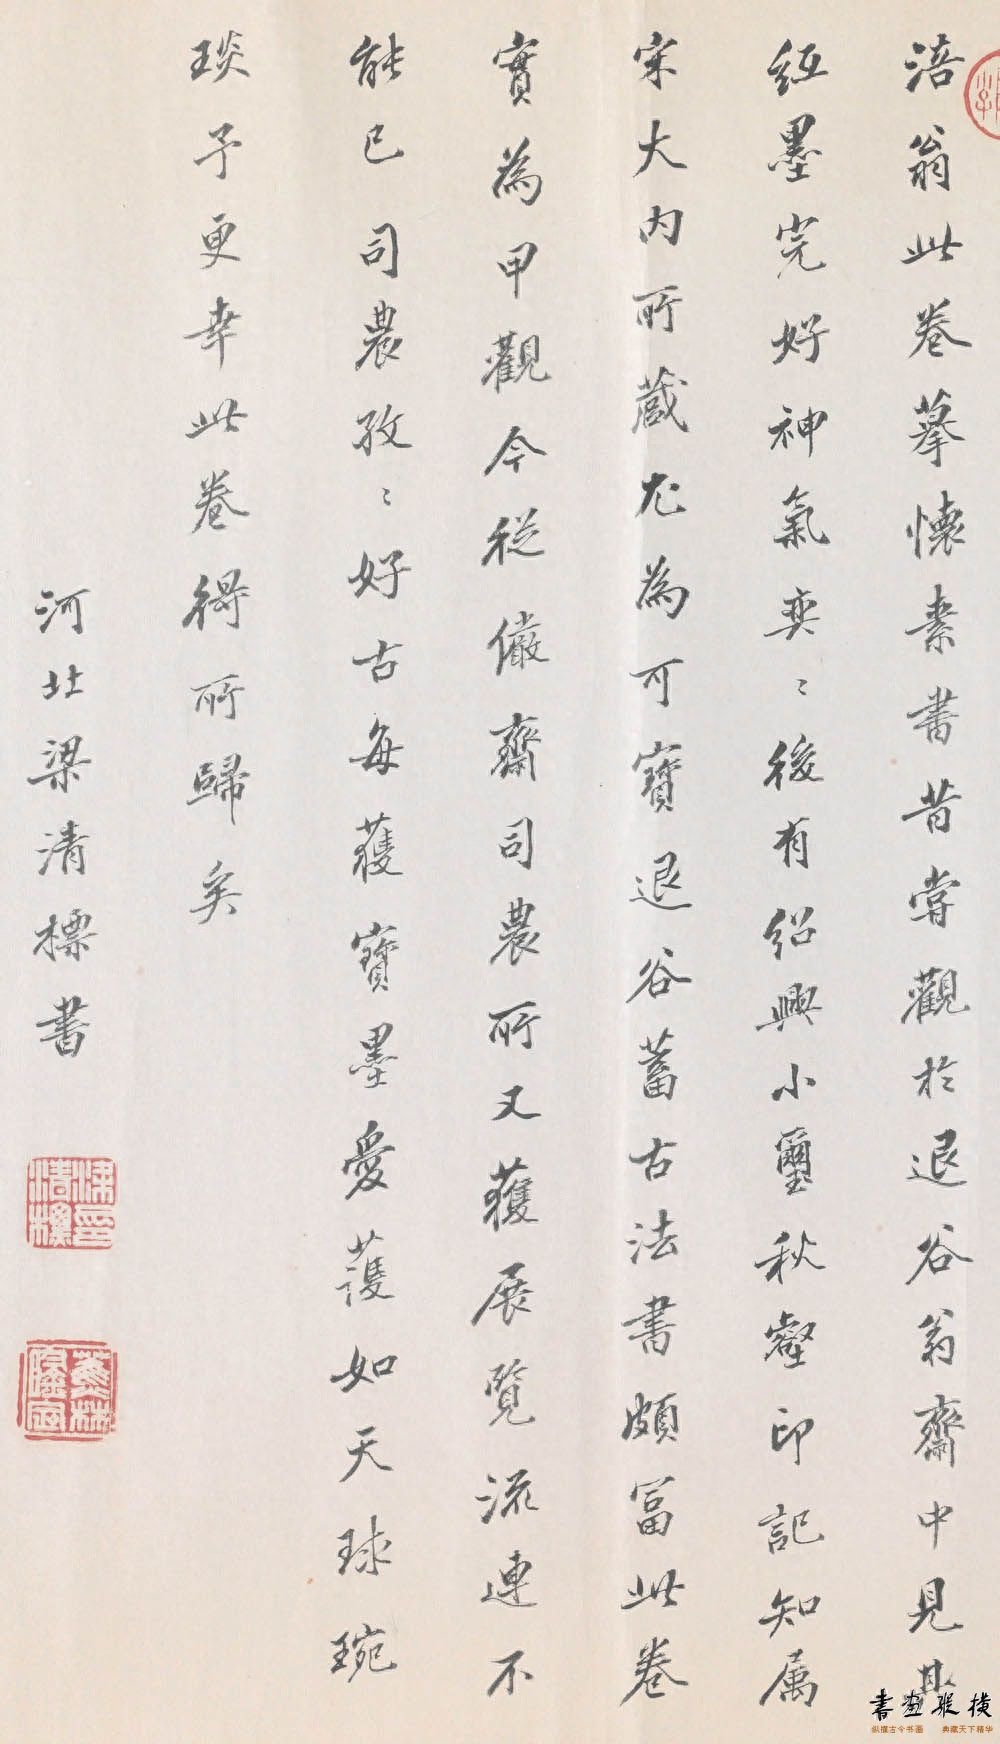 涪翁此卷摹懷素書昔嘗觀於退谷翁齋中見其
紙墨完好神氣奕〻後有紹興小璽秋壑印記知属
宋大内所蔵尤為可寶退谷蓄古法書頗富此卷
實為甲觀今從儼齋司農所又獲展覽流連不
能已司農孜〻好古每獲寶墨愛護如天球琬
琰予更幸此卷得所歸矣
河北梁清標書
蕉林
書画縱橫
纵横古今书画 典藏天下精华